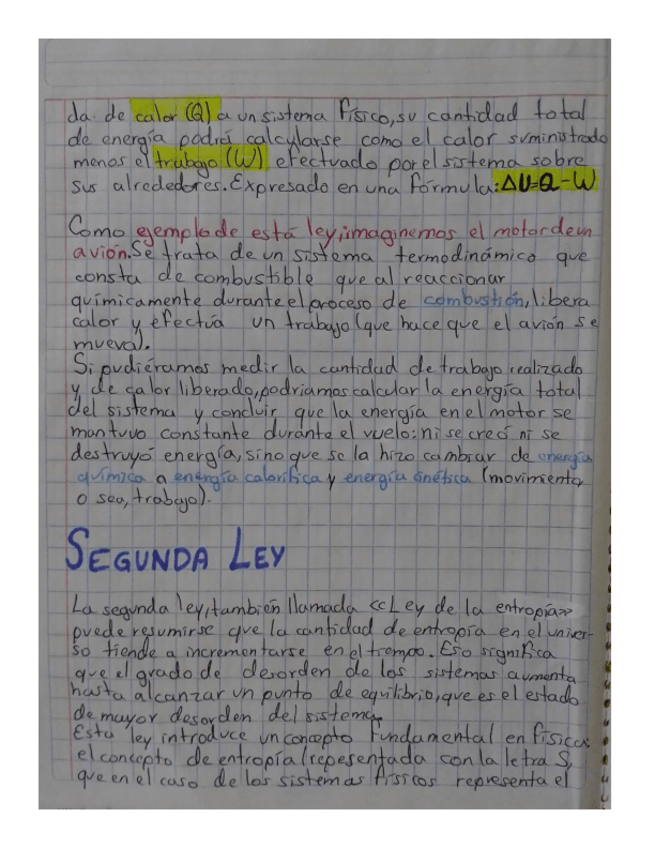 da de calor (Q) a un sistema físico, su cantidad total
de energía podrá calcularse como el calor suministrado
menos el trabajo (W) efectuado por el sistema sobre
sus alrededores. Expresado en una fórmula: ΔU=Q-W
Como ejemplo de está ley, imaginemos el motor de un
avión. Se trata de un sistema termodinámico que
consta de combustible que al reaccionar
químicamente durante el proceso de combustión, libera
calor y efectúa un trabajo (que hace que el avión se
mueva).
Si pudiéramos medir la cantidad de trabajo realizado
y de calor liberado, podríamos calcular la energía total
del sistema y concluir que la energía en el motor se
mantuvo constante durante el vuelo: ni se creó ni se
destruyó energía, sino que se la hizo cambiar de energía
química a energía calorífica y energía cinética (movimiento,
o sea, trabajo).
SEGUNDA LEY
La segunda ley, también llamada «Ley de la entropía»
puede resumirse que la cantidad de entropía en el univer-
so tiende a incrementarse en el tiempo. Eso significa
que el grado de desorden de los sistemas aumenta
hasta alcanzar un punto de equilibrio, que es el estado
de mayor desorden del sistema.
Esta ley introduce un concepto fundamental en física:
el concepto de entropía (representada con la letra S),
que en el caso de los sistemas físicos representa el